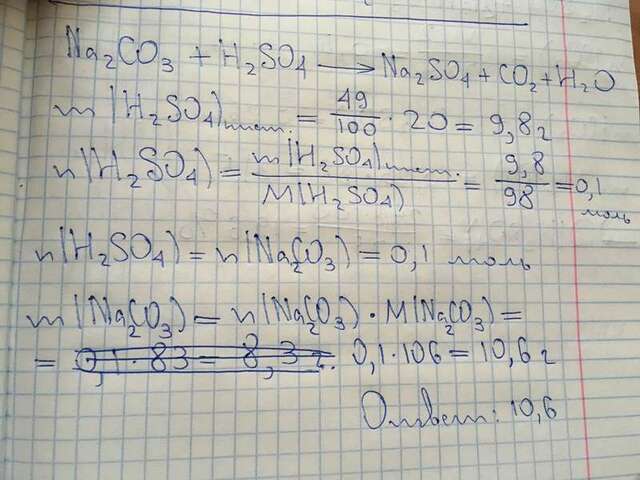 Na₂CO₃ + H₂SO₄ → Na₂SO₄ + CO₂ + H₂O
m(H₂SO₄)чист. = 49/100 · 20 = 9,8г
n(H₂SO₄) = m(H₂SO₄)чист./M(H₂SO₄) = 9,8/98 = 0,1 моль
n(H₂SO₄) = n(Na₂CO₃) = 0,1 моль
m(Na₂CO₃) = n(Na₂CO₃) · M(Na₂CO₃) =
= 0,1 · 83 = 8,3 г. 0,1 · 106 = 10,6 г
Ответ: 10,6